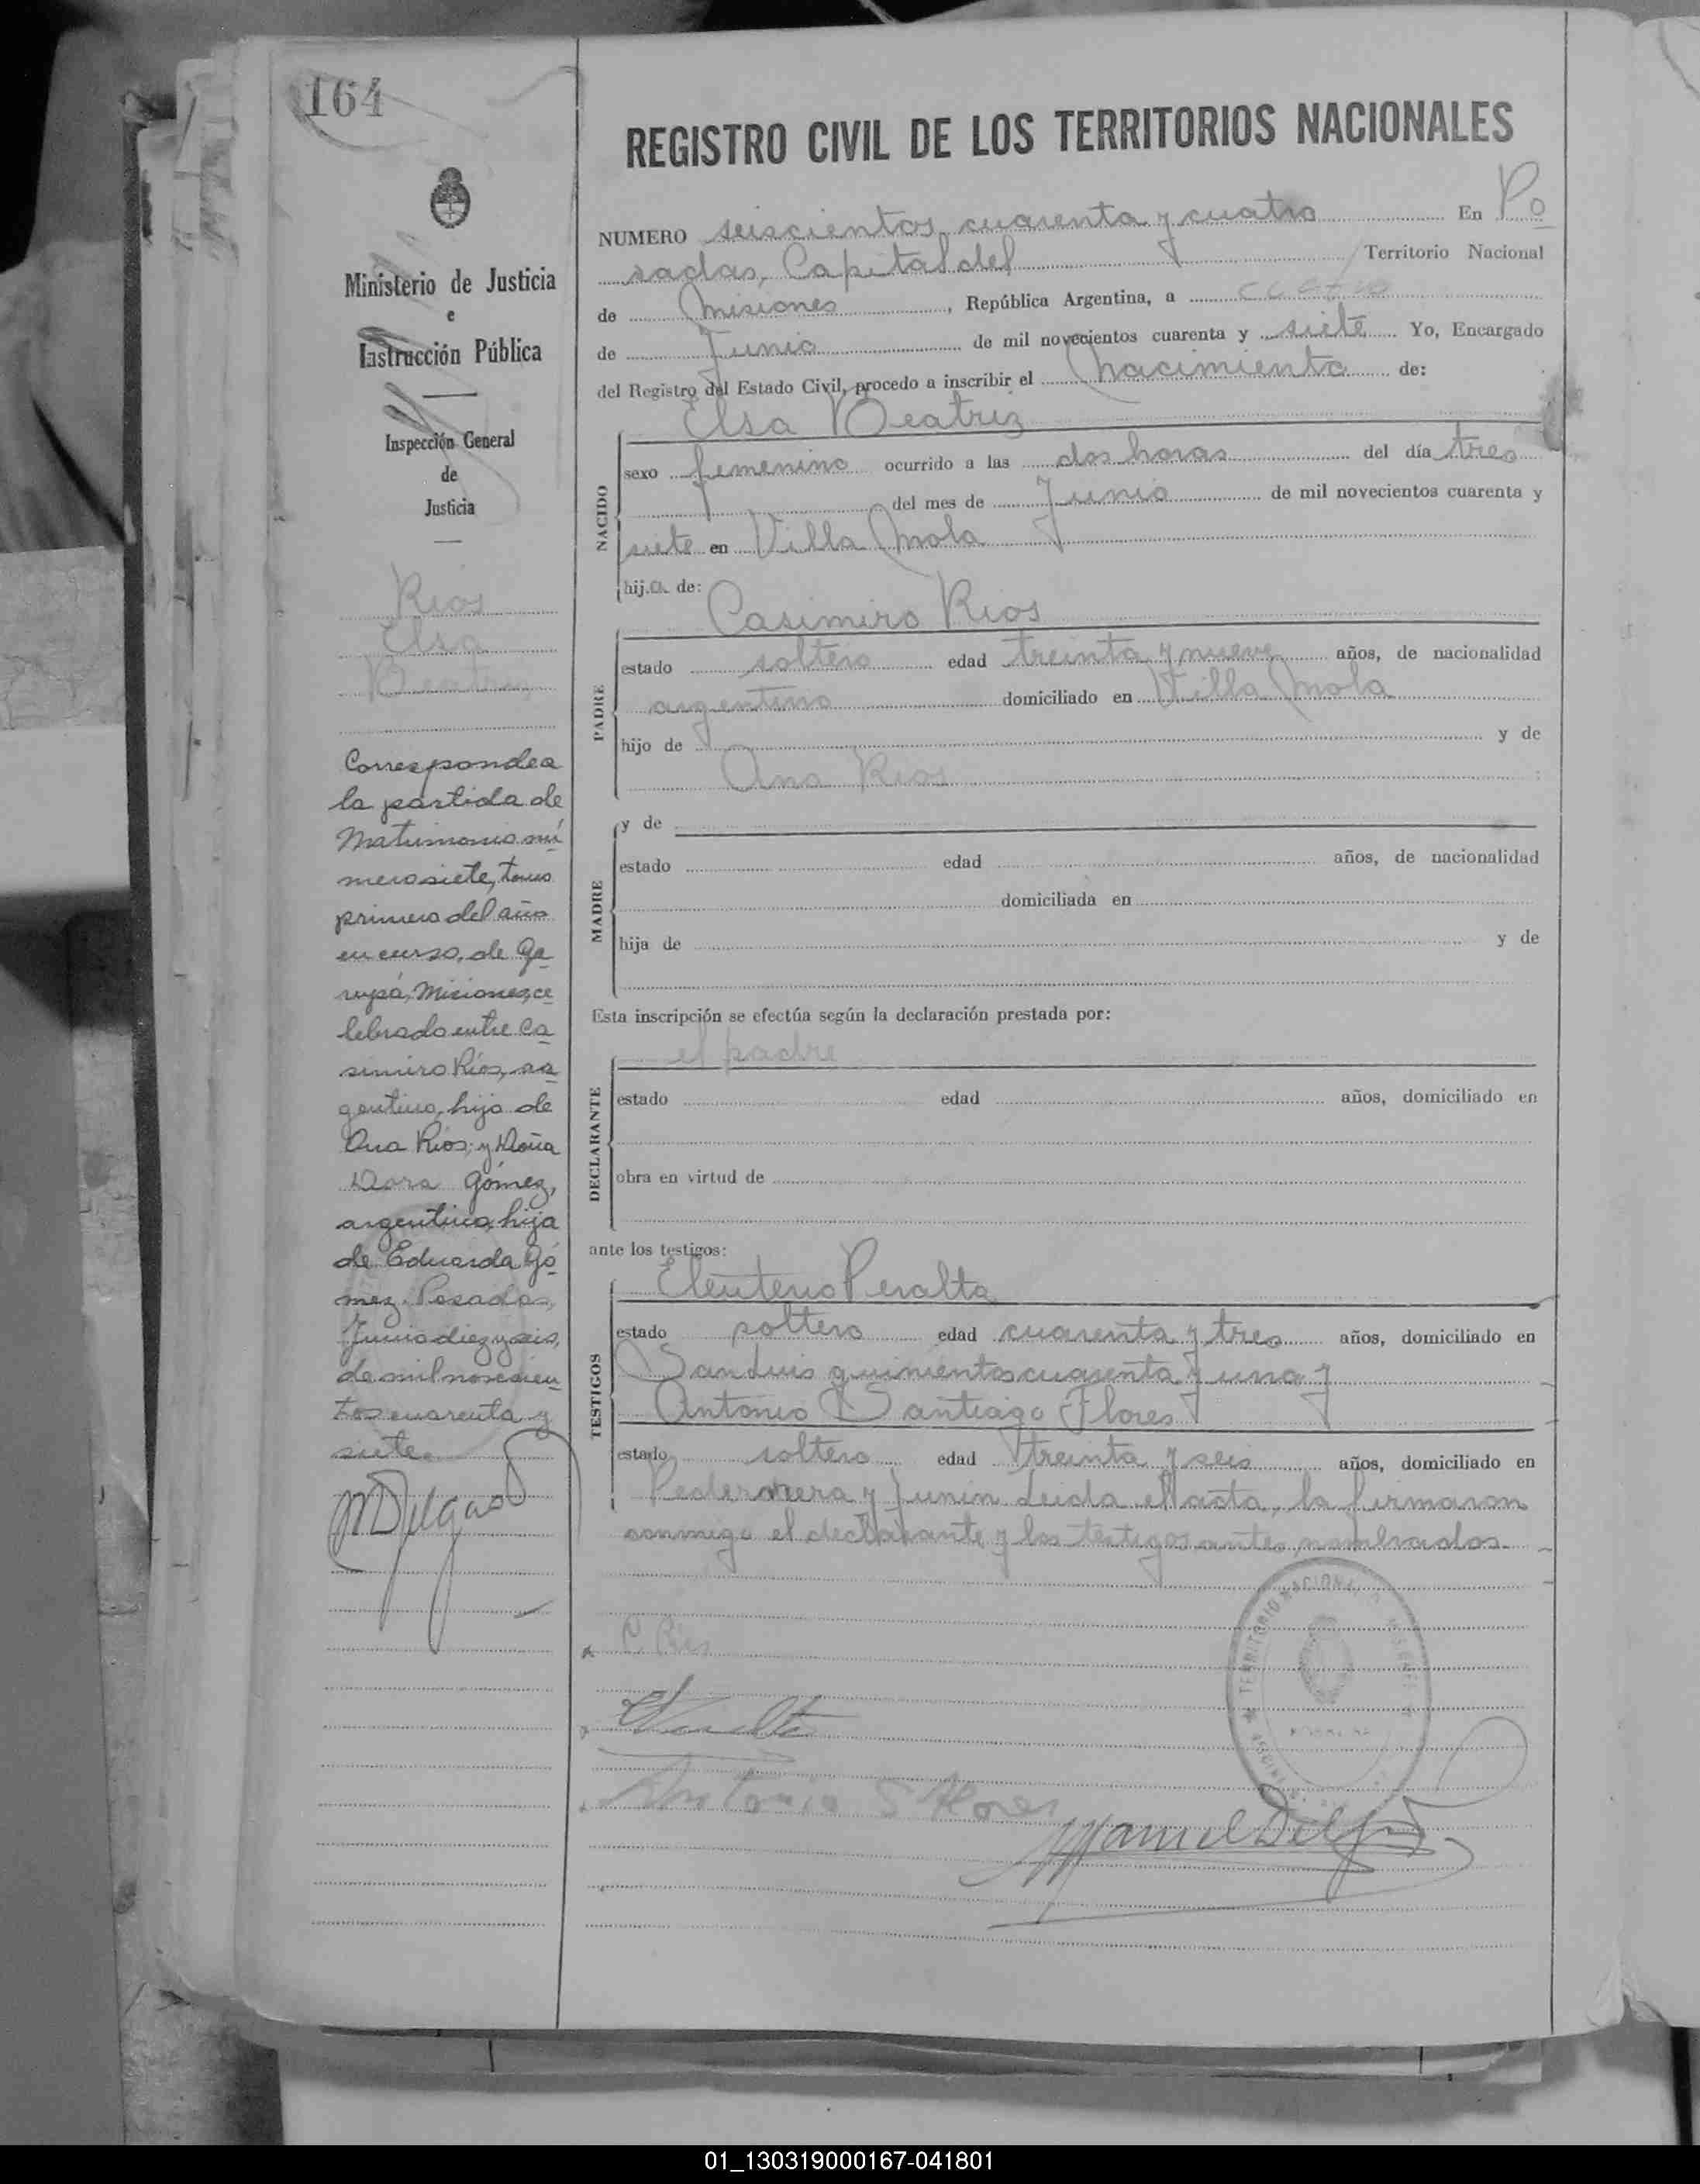 164
REGISTRO CIVIL DE LOS TERRITORIOS NACIONALES
Ministerio de Justicia
e
Instrucción Pública
Inspección General
de
Justicia
Rios
Elsa
Beatriz
Corresponde a
la partida de
Matrimonio nú
mero siete, tomo
primero del año
en curso, de Ga
rupá, Misiones, ce
lebrado entre Ca
simiro Ríos, ar
gentino, hijo de
Ana Ríos; y Doña
Dora Gómez,
argentina, hija
de Eduarda Gó
mez. Posadas,
Junio diez y seis,
de mil novecien
tos cuarenta y
siete.
MDelgado
NUMERO seiscientos cuarenta y cuatro En Po
sadas, Capital del Territorio Nacional
de Misiones, República Argentina, a cuatro
de Junio de mil novecientos cuarenta y siete Yo, Encargado
del Registro del Estado Civil, procedo a inscribir el nacimiento de:
Elsa Beatriz
NACIDO
sexo femenino ocurrido a las dos horas del día tres
del mes de Junio de mil novecientos cuarenta y
siete en Villa Mola
hij.a de:
Casimiro Rios
PADRE
estado soltero edad treinta y nueve años, de nacionalidad
argentino domiciliado en Villa Mola
hijo de y de
Ana Rios
MADRE
y de
estado edad años, de nacionalidad
domiciliada en
hija de y de
Esta inscripción se efectúa según la declaración prestada por:
el padre
DECLARANTE
estado edad años, domiciliado en
obra en virtud de
ante los testigos:
Eleuterio Peralta
TESTIGOS
estado soltero edad cuarenta y tres años, domiciliado en
San Luis quinientos cuarenta y uno y
Antonio Santiago Flores
estado soltero edad treinta y seis años, domiciliado en
Pedernera y Junin Leida el acta, la firmaron
conmigo el declarante y los testigos antes nombrados.
C. Rios
Antonio S Flores
TERRITORIO NACIONAL
Manuel Delgado
01_130319000167-041801